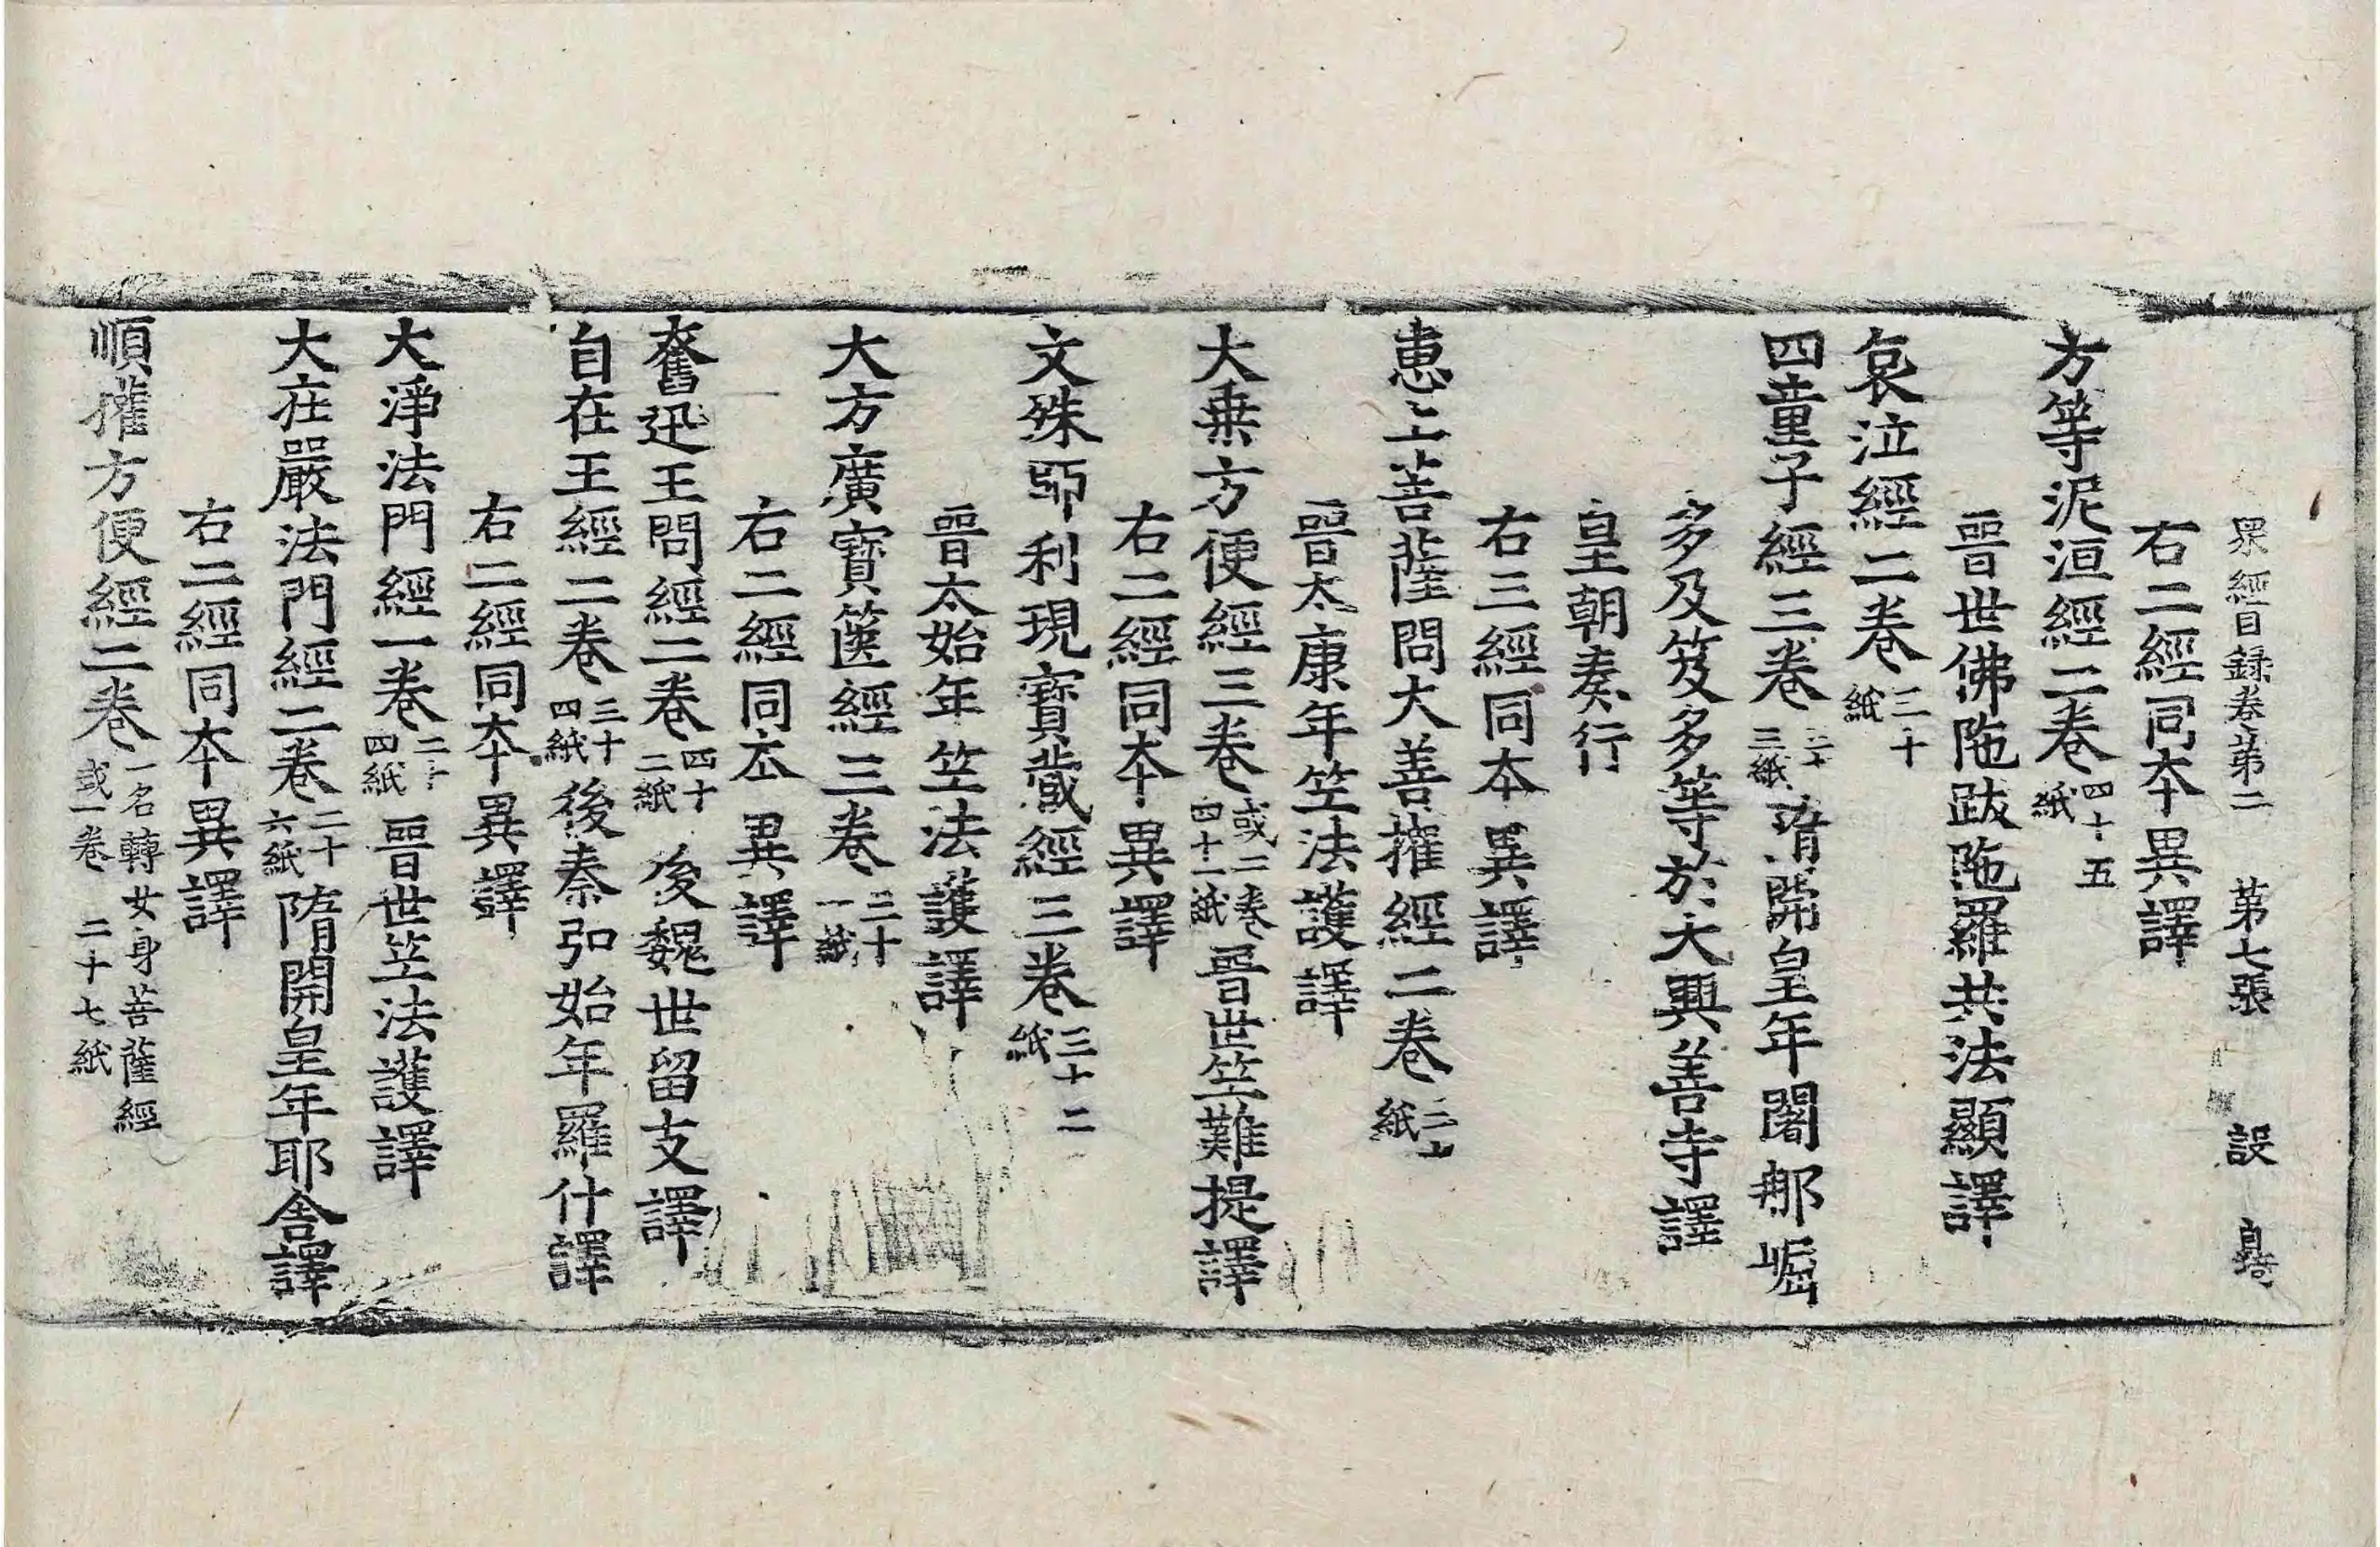 衆經目録卷第二 第七張 設
右二經同本異譯
方等泥洹經二卷 四十五紙
晉世佛陁跋陁羅共法顯譯
哀泣經二卷 三十紙
四童子經三卷 三十三紙 隋開皇年闍那崛
多及笈多等於大興善寺譯
皇朝奏行
右三經同本異譯
惠上菩薩問大善攉經二卷 三十紙
晉太康年竺法護譯
大乗方便經三卷 或二卷四十一紙 晉世竺難提譯
右二經同本異譯
文殊師利現寶藏經三卷 三十二紙
晉太始年竺法護譯
大方廣寶篋經三卷 三十一紙
右二經同本異譯
奮迅王問經二卷 四十二紙 後魏世留支譯
自在王經二卷 三十四紙 後秦弘始年羅什譯
右二經同本異譯
大淨法門經一卷 二十四紙 晉世竺法護譯
大莊嚴法門經二卷 二十六紙 隋開皇年耶舍譯
右二經同本異譯
順攉方便經二卷 一名轉女身菩薩經或一卷 二十七紙